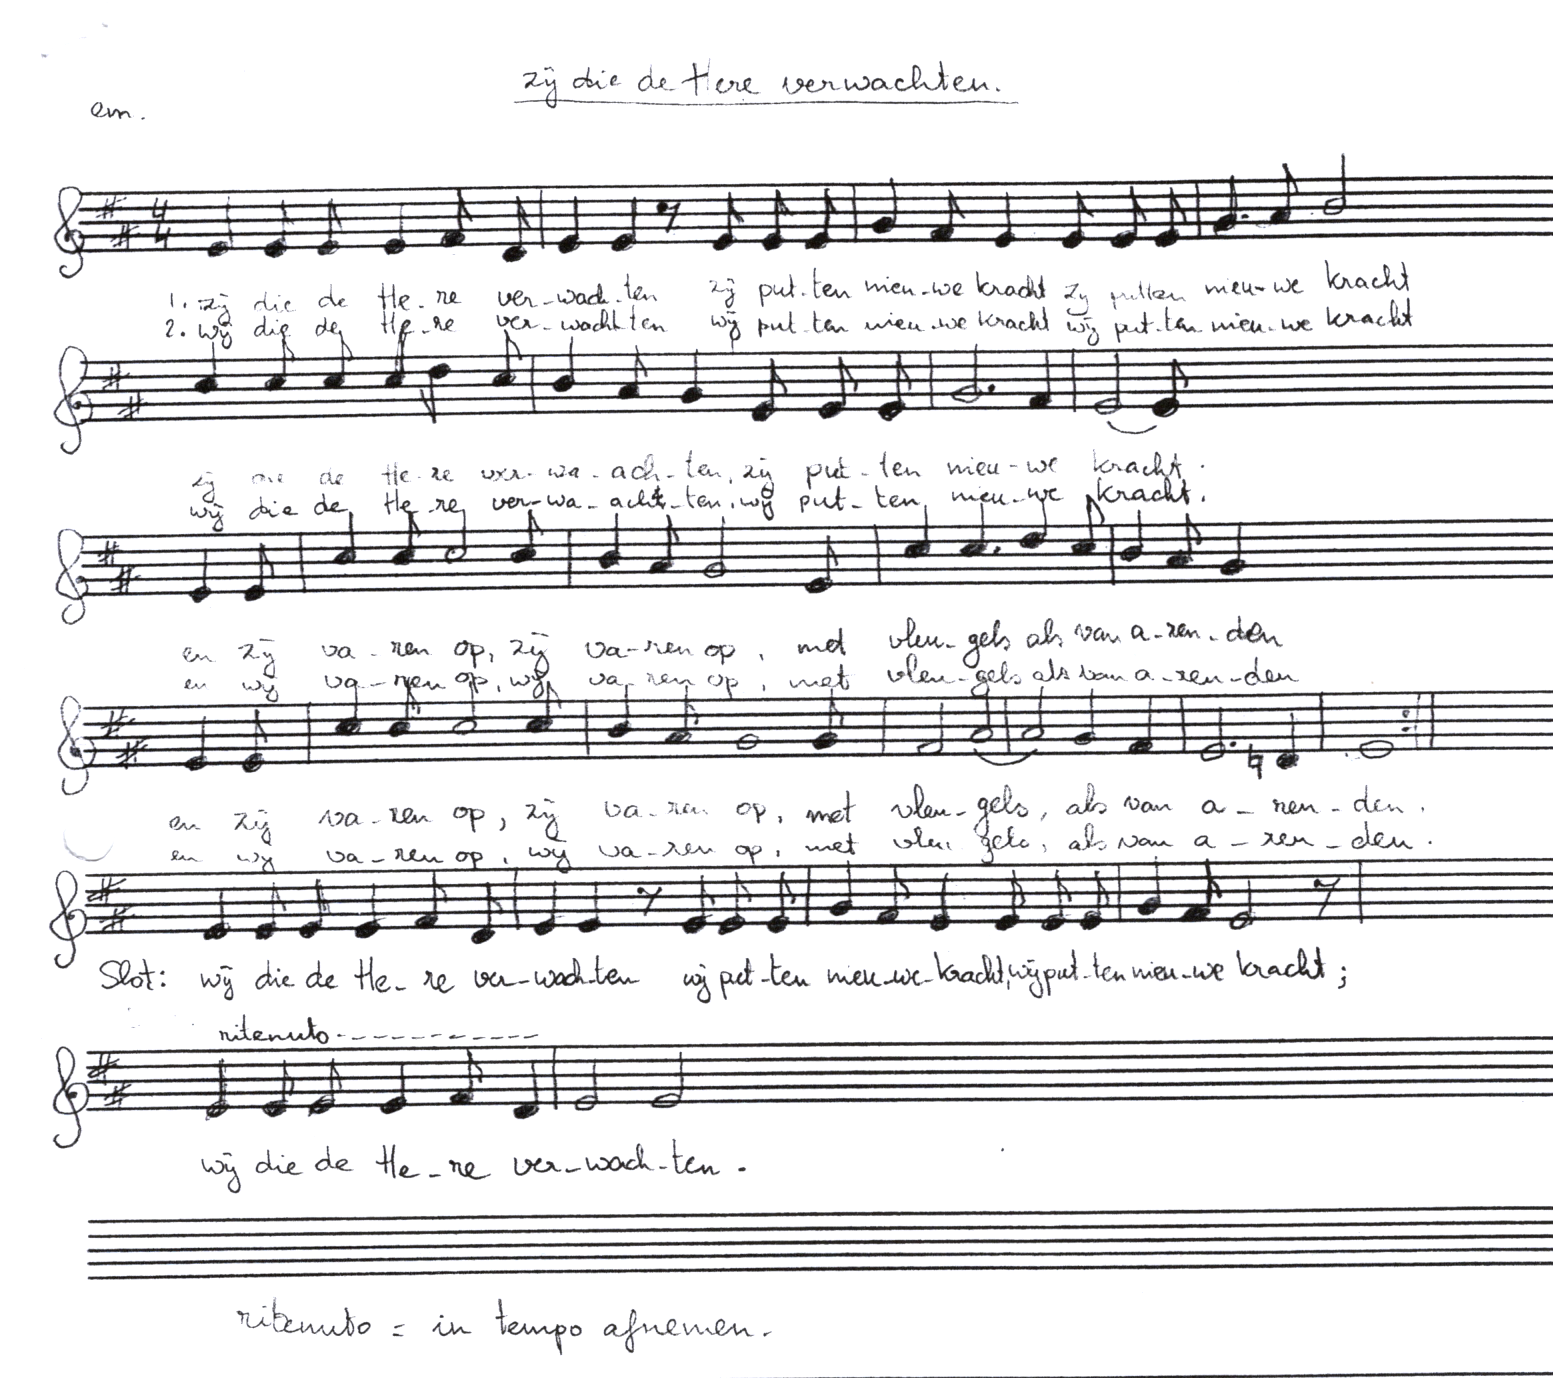 zij die de Here verwachten.
em.
4
4
1. zij die de He-re ver-wach-ten zij put-ten nieu-we kracht zij putten nieu-we kracht
2. wij die de He-re ver-wacht-ten wij put-ten nieu-we kracht wij put-ten nieu-we kracht
zij die de He-re ver-wa-ach-ten, zij put-ten nieu-we kracht.
wij die de He-re ver-wa-acht-ten, wij put-ten nieu-we kracht.
en zij va-ren op, zij va-ren op, met vleu-gels als van a-ren-den
en wij va-ren op, wij va-ren op, met vleu-gels als van a-ren-den
en zij va-ren op, zij va-ren op, met vleu-gels, als van a-ren-den.
en wij va-ren op, wij va-ren op, met vleu gels, als van a-ren-den.
Slot: wij die de He-re ver-wach-ten wij put-ten nieu-we-kracht, wij put-ten nieu-we kracht;
ritenuto-----------
wij die de He-re ver-wach-ten.
ritenuto = in tempo afnemen.